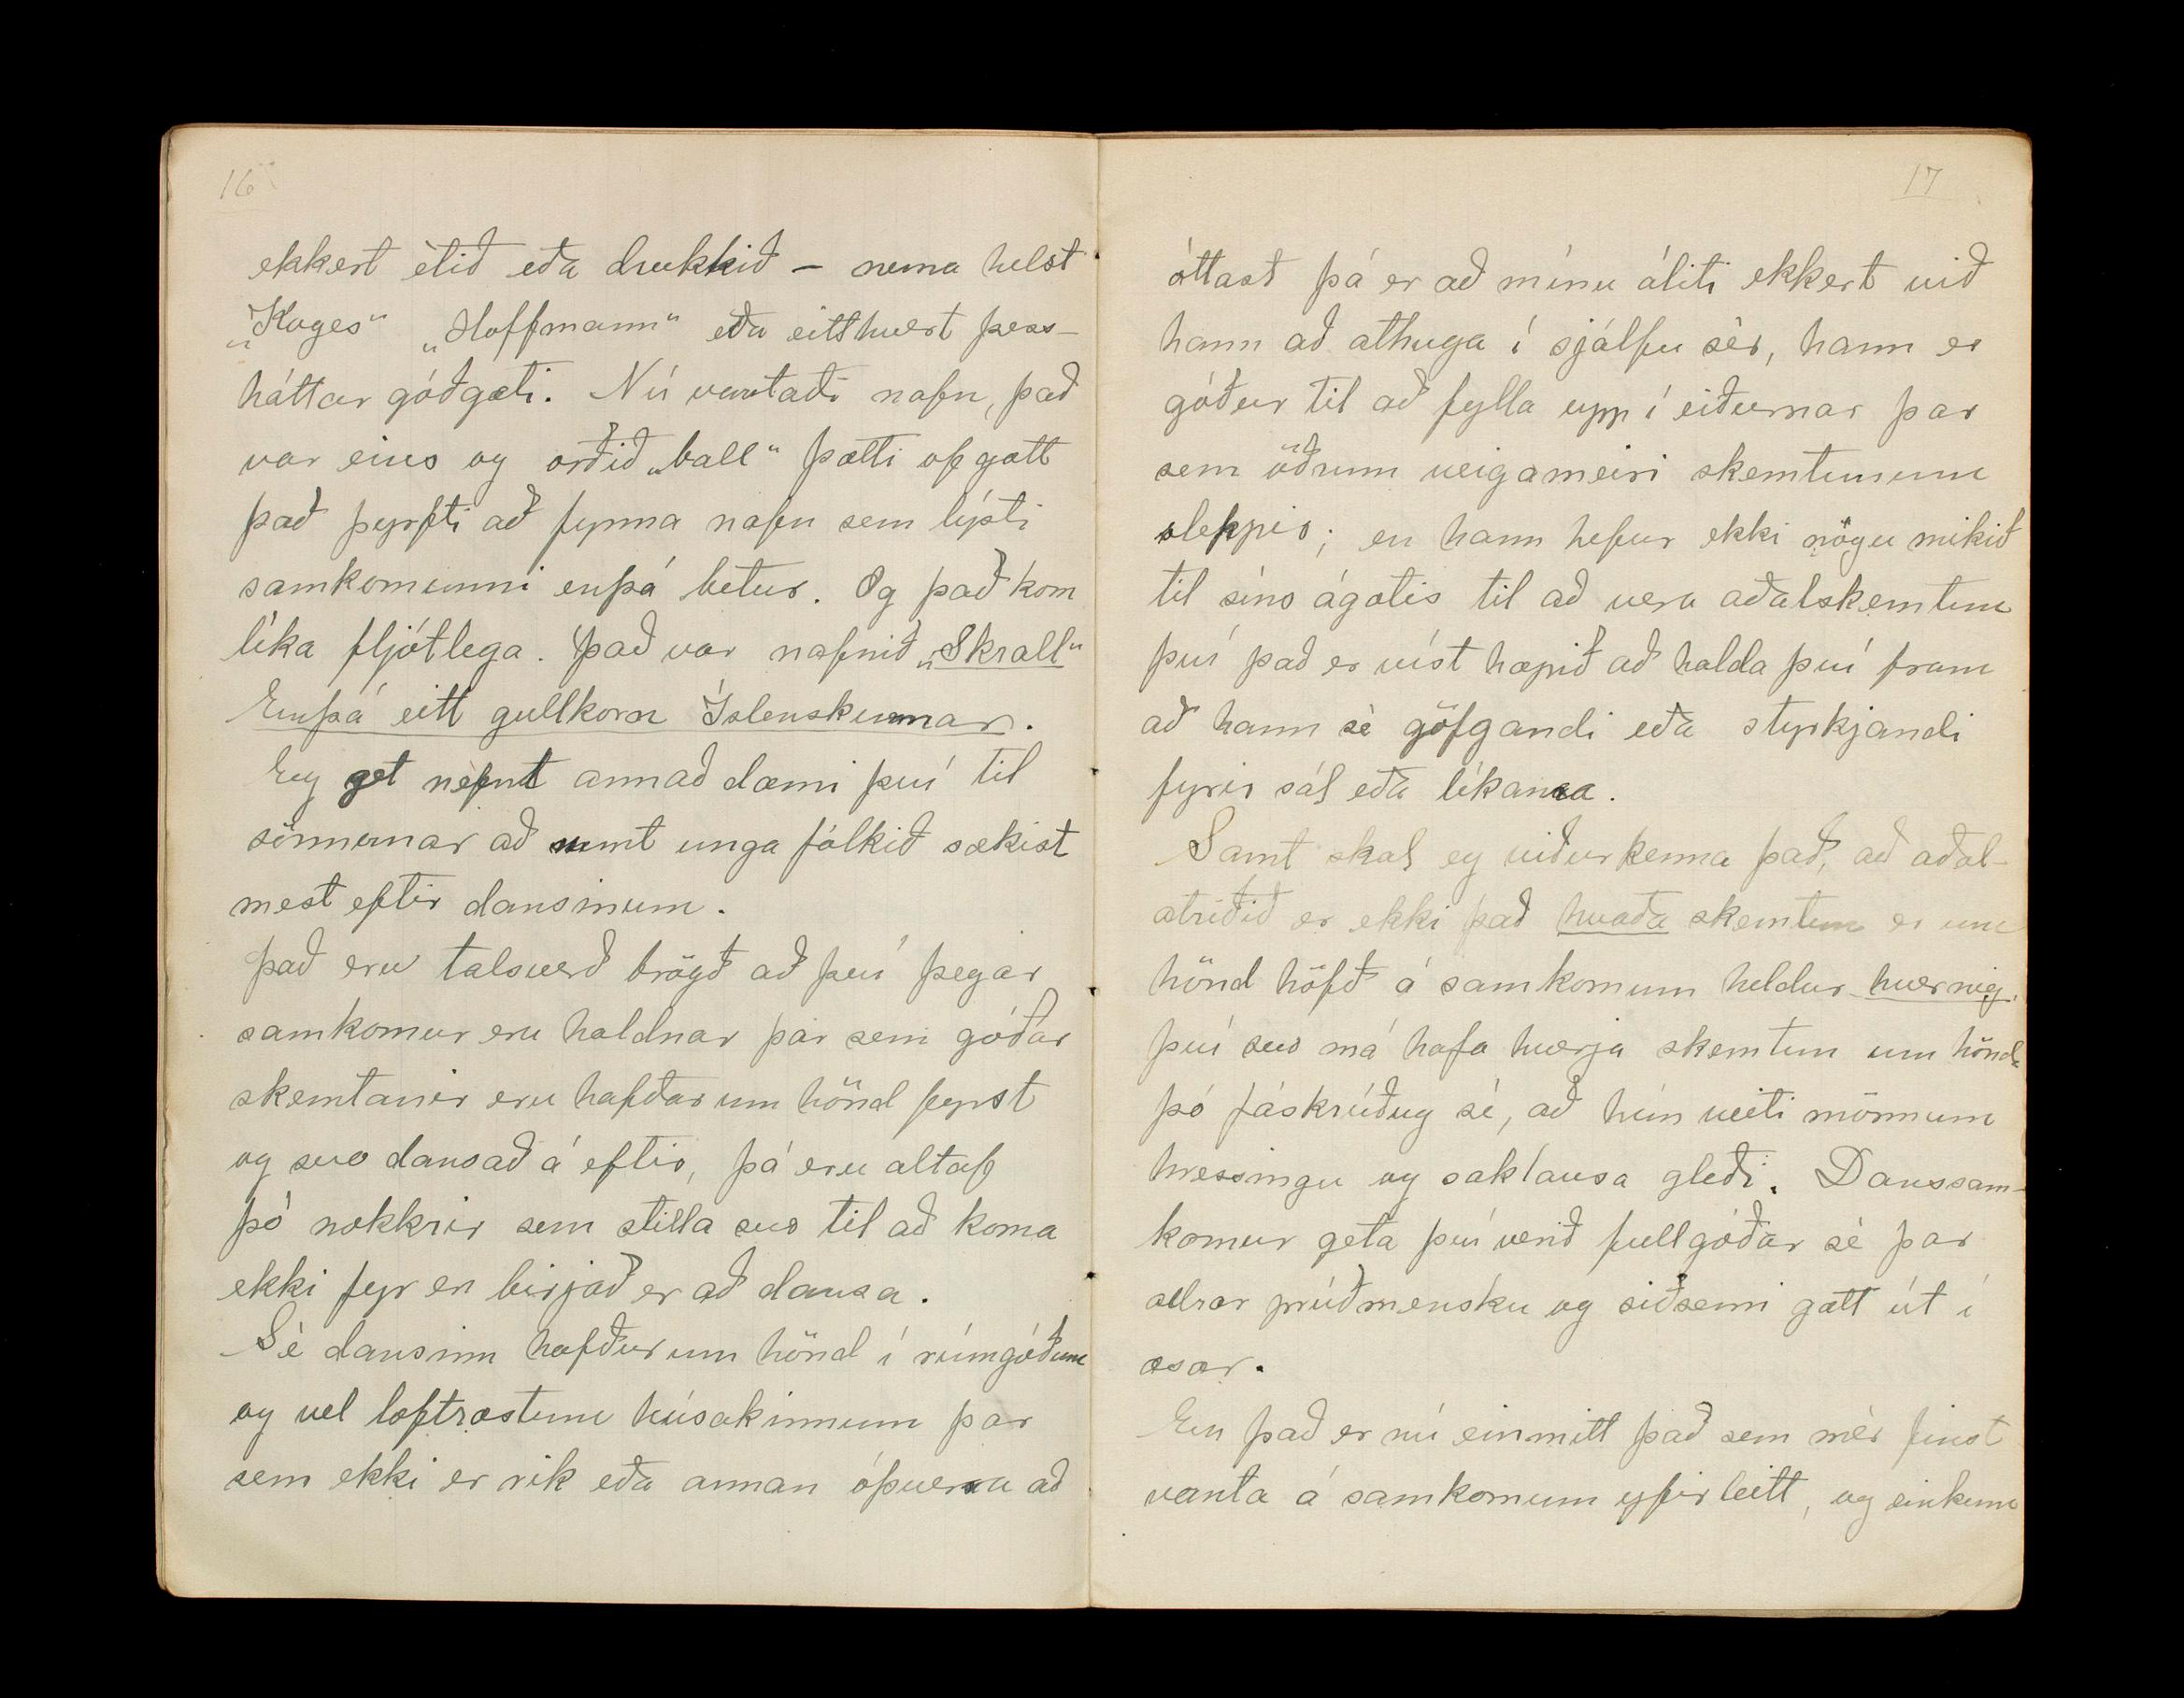 16
ekkert étið eða drukkið – nema helst
„Koges" „Hoffmann" eða eitthvert þess-
háttar góðgæti. Nú vantaði nafn, það
var eins og orðið „ball" þætti of gott
það þyrfti að fynna nafn sem lýsti
samkomunni ennþá betur. Og það kom
líka fljótlega. Það var nafnið „Skrall"
Ennþá eitt gullkorn Íslenskunnar.
Eg get nefnt annað dæmi því til
sönnunar að sumt unga fólkið sækist
mest eftir dansinum.
Það eru talsverð brögð að því þegar
samkomur eru haldnar þar sem góðar
skemtanir eru hafðar um hönd fyrst
og svo dansað á eftir, þá eru altaf
þó nokkrir sem stilla svo til að koma
ekki fyr en birjað er að dansa.
Sé dansinn hafður um hönd í rúmgóðum
og vel loftræstum húsakinnum þar
sem ekki er rik eða annan óþverra að
17
óttast þá er að mínu áliti ekkert við
hann að athuga í sjálfu sér, hann er
góður til að fylla upp í eiðurnar þar
sem öðrum veigameiri skemtunum
sleppir; en hann hefur ekki nógu mikið
til síns ágætis til að vera aðalskemtun
því það er víst hæpið að halda því fram
að hann sé göfgandi eða styrkjandi
fyrir sál eða líkama.
Samt skal eg viðurkenna það, að aðal-
atriðið er ekki það hvaða skemtun er um
hönd höfð á samkomum heldur hvernig.
því svo má hafa hverja skemtun um hönd
þó fáskrúðug sé, að hún veiti mönnum
hressingu og saklausa gleði. Danssam-
komur geta því verið fullgóðar sé þar
allrar prúðmensku og siðsemi gætt út í
æsar.
En það er nú einmitt það sem mér finst
vanta á samkomum yfirleitt, og einkum